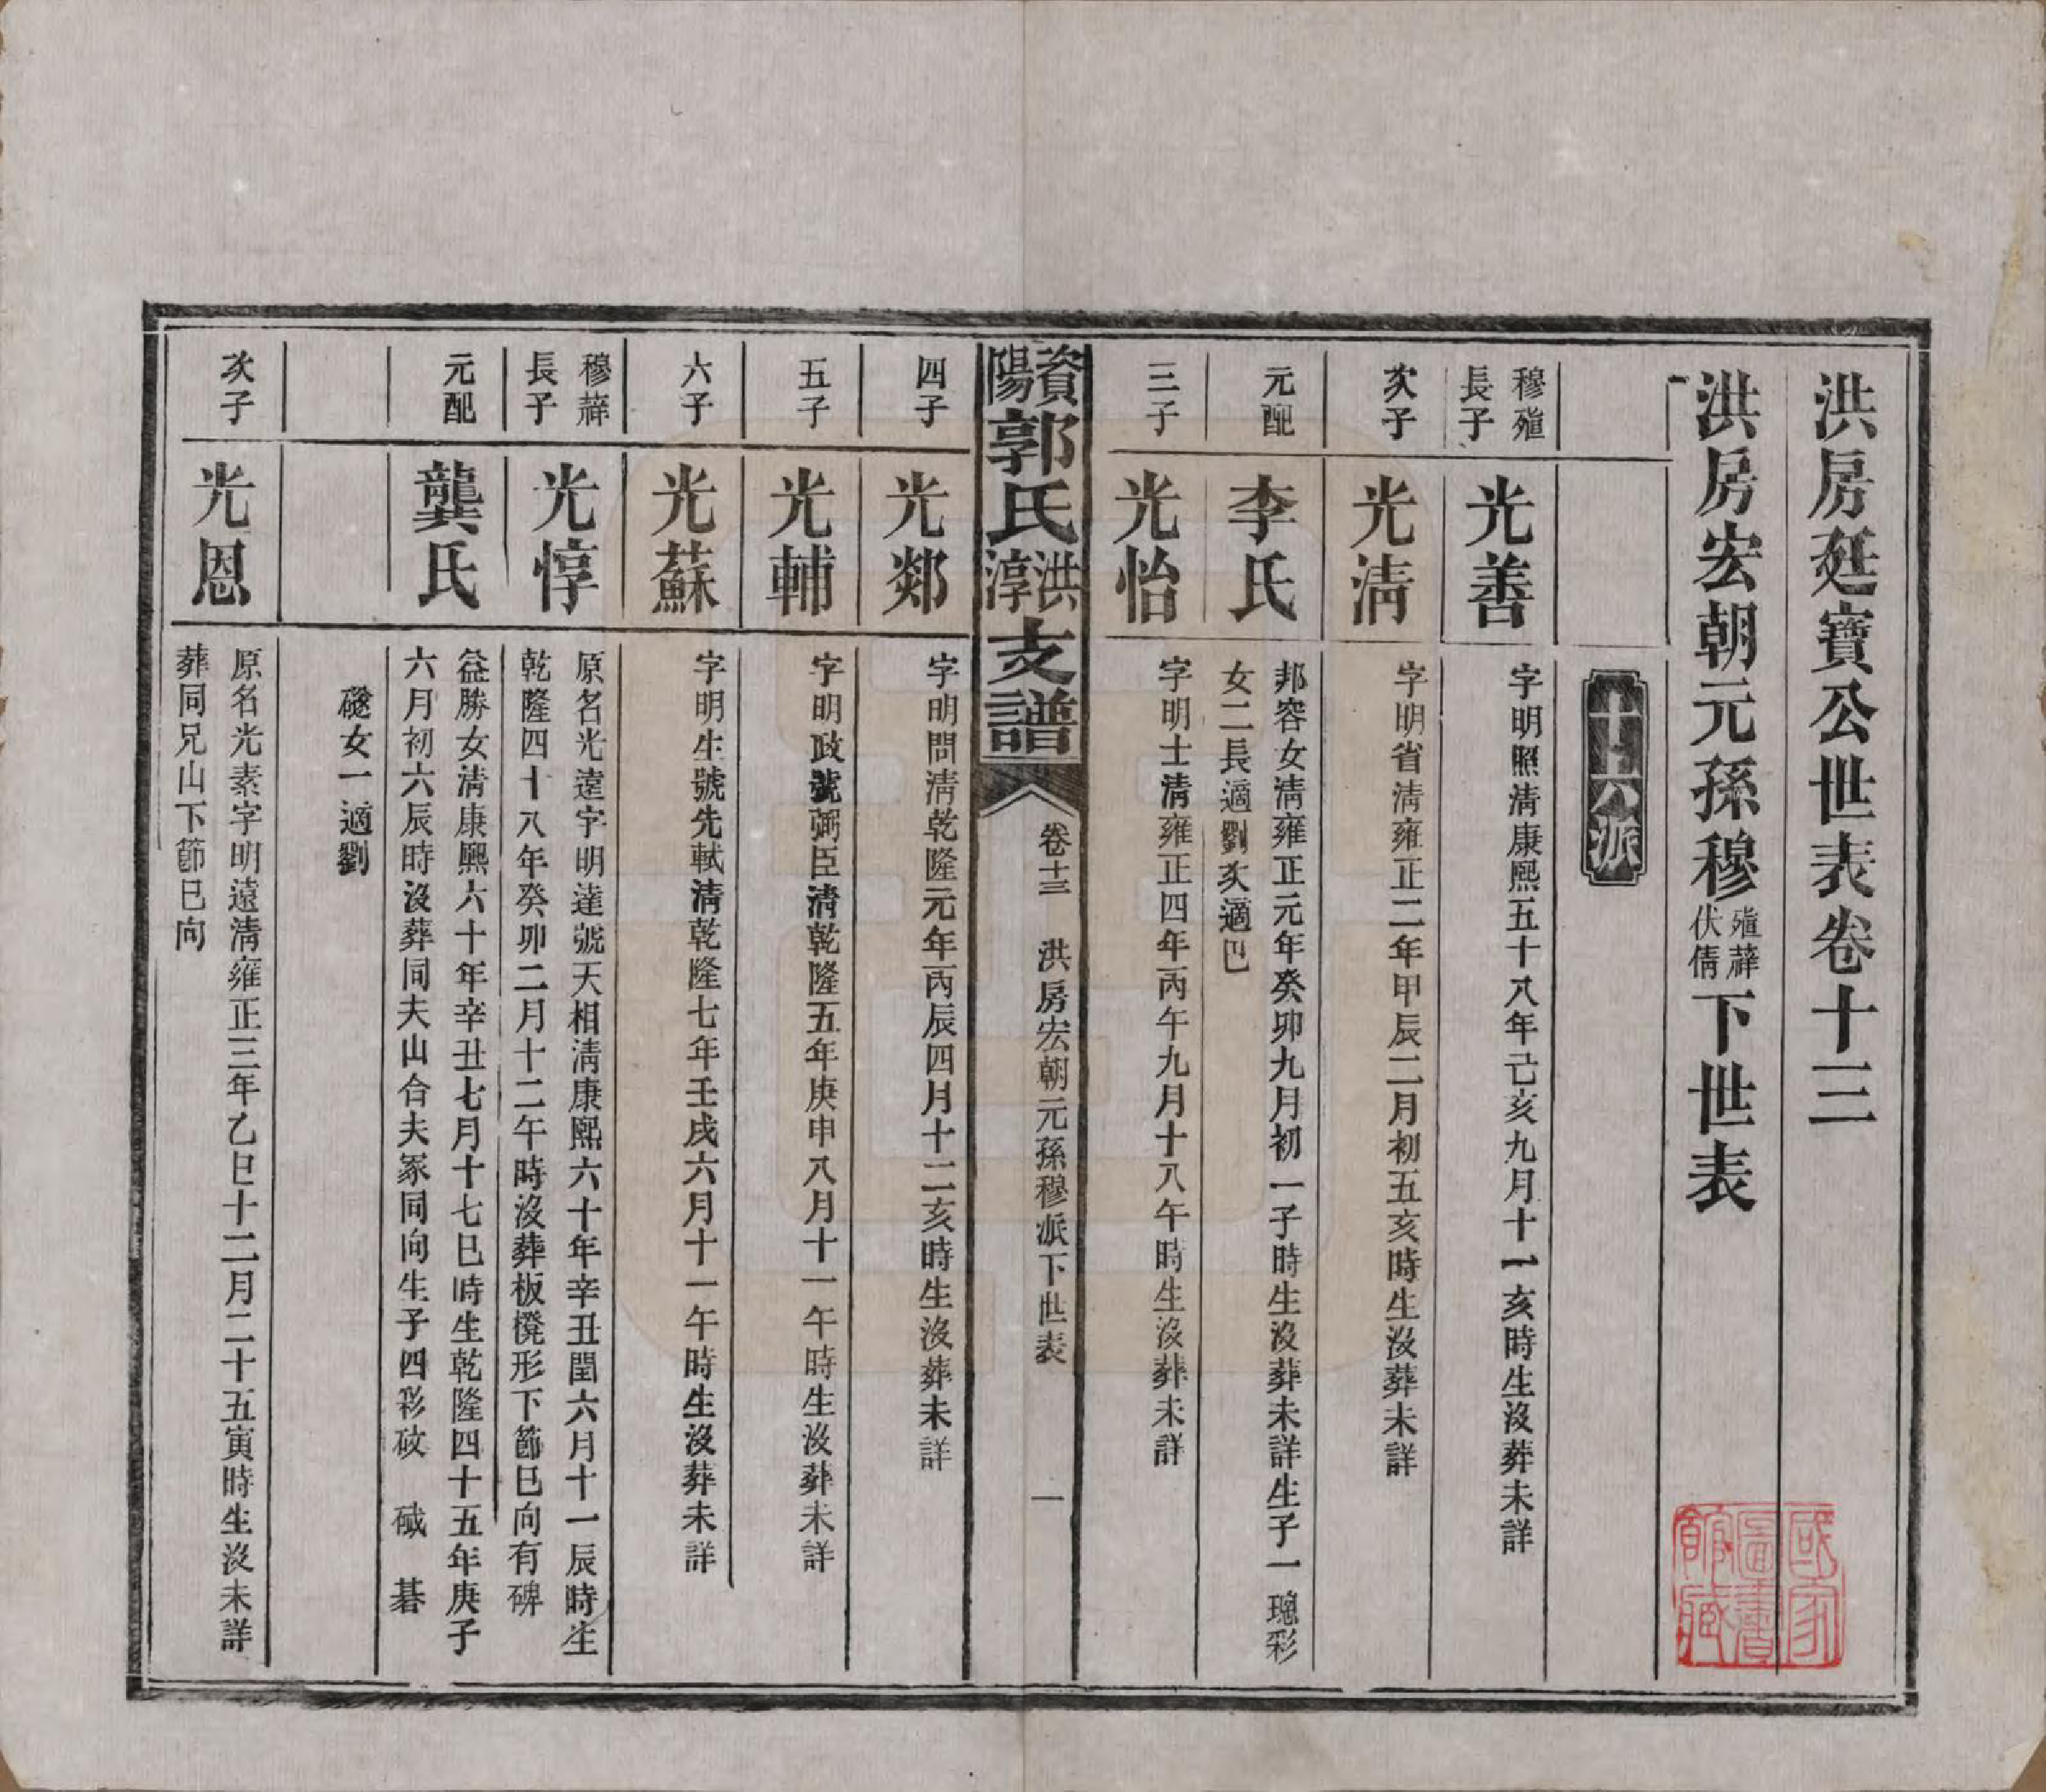 洪房莛寶公世表卷十三
洪房宏朝元孫穆殖薜伏倩下世表
十六派
穆殖長子
光善
字明照淸康熙五十八年己亥九月十一亥時生沒葬未詳
次子
光淸
字明省淸雍正二年甲辰二月初五亥時生沒葬未詳
元配
李氏
邦容女淸雍正元年癸卯九月初一子時生沒葬未詳生子一 璁彩
女二長適劉次適巴
三子
光怡
字明士淸雍正四年丙午九月十八午時生沒葬未詳
資陽郭氏洪淳支譜
卷十三
洪房宏朝元孫穆派下世表
一
四子
光郯
字明問淸乾隆元年丙辰四月十二亥時生沒葬未詳
五子
光輔
字明政號弼臣淸乾隆五年庚申八月十一午時生沒葬未詳
六子
光蘇
字明生號先軾淸乾隆七年壬戌六月十一午時生沒葬未詳
穆薜長子
光惇
原名光達字明達號天相淸康熙六十年辛丑閏六月十一辰時生
乾隆四十八年癸卯二月十二午時沒葬板櫈形下節巳向有碑
元配
龔氏
益勝女淸康熙六十年辛丑七月十七巳時生乾隆四十五年庚子
六月初六辰時沒葬同夫山合夫冢同向生子四彩 碱 碁
礠女一適劉
次子
光恩
原名光素字明遠淸雍正三年乙巳十二月二十五寅時生沒未詳
葬同兄山下節巳向
國家圖書館藏